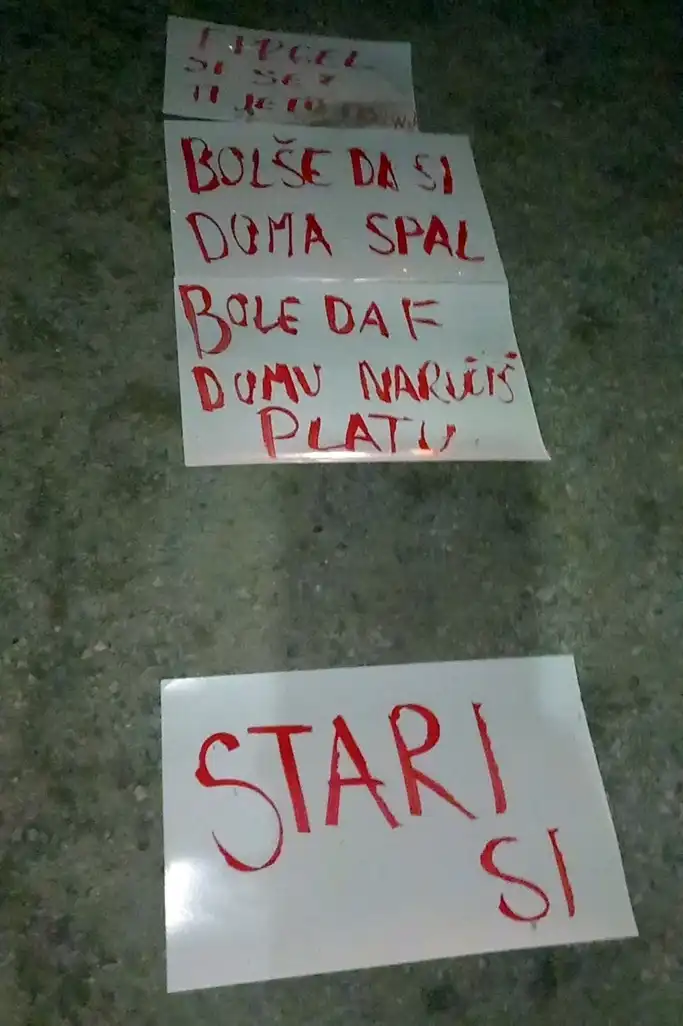 SI
BOLŠE DA SI
DOMA SPAL
BOLE DA F
DOMU NARUČIŠ
PLATU
STARI
SI